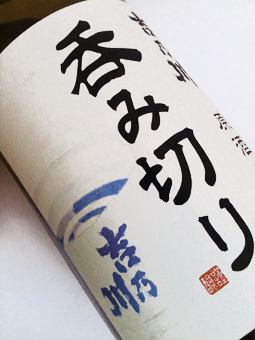 呑み切り
原酒
吉乃川